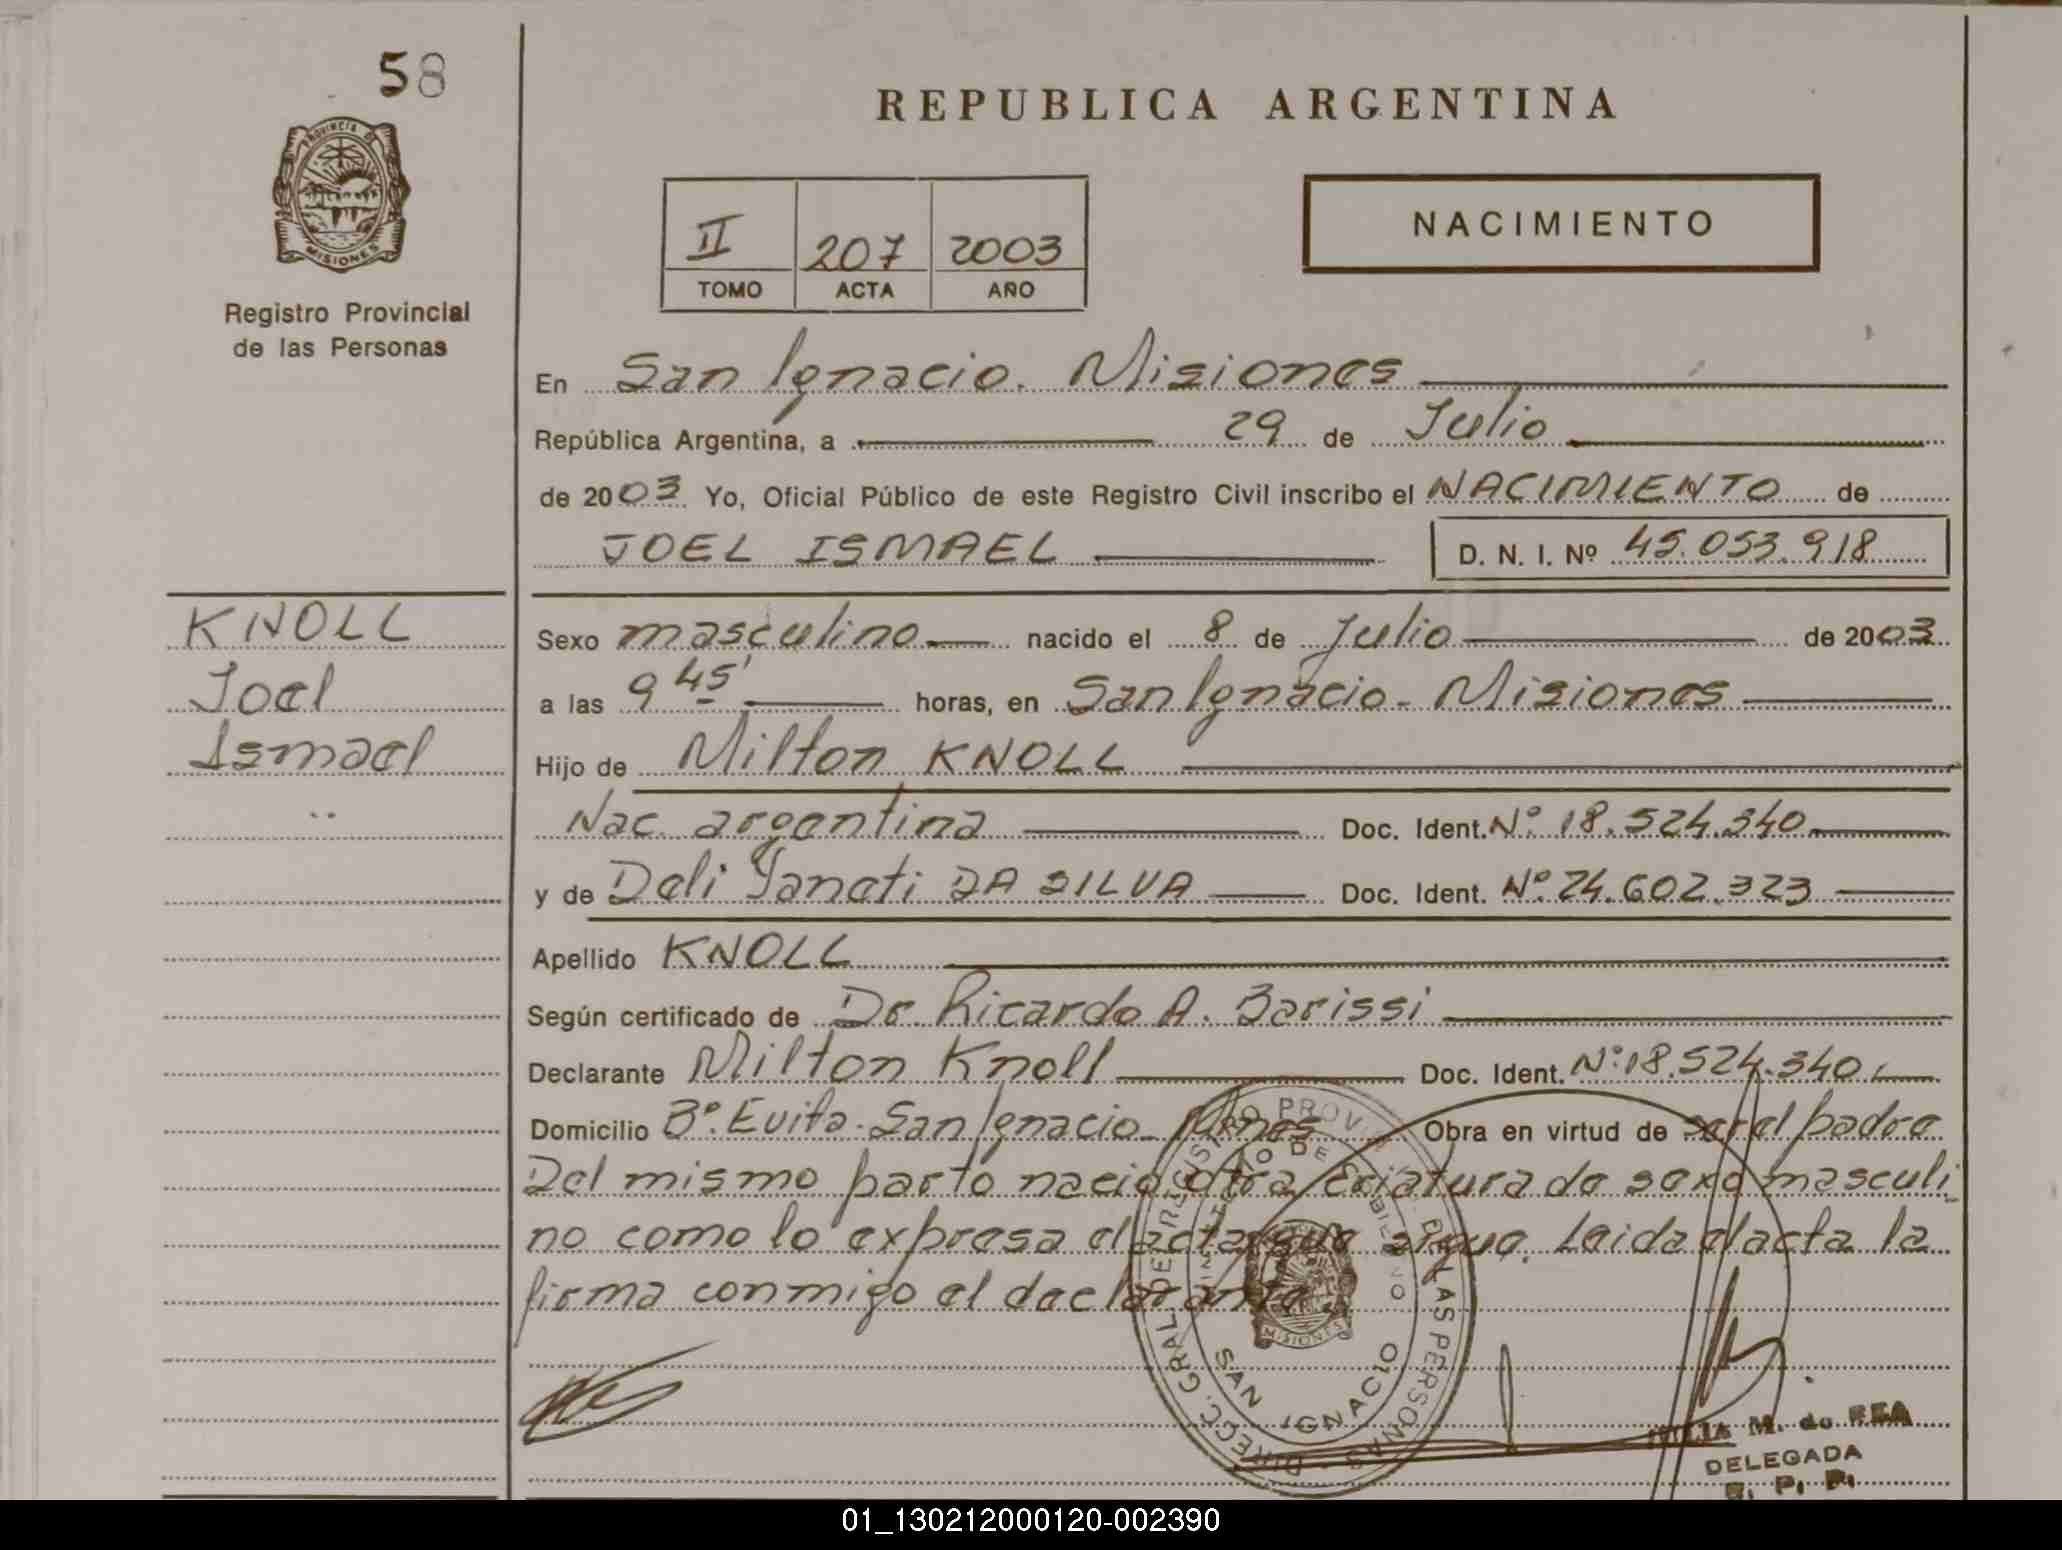 58
REPUBLICA ARGENTINA
PROVINCIA DE
MISIONES
Registro Provincial
de las Personas
II 207 2003
TOMO ACTA AÑO
NACIMIENTO
En San Ignacio. Misiones
República Argentina, a 29 de Julio
de 2003 Yo, Oficial Público de este Registro Civil inscribo el NACIMIENTO de
JOEL ISMAEL D. N. I. Nº 45.053.918
KNOLL
Joel
Ismael
Sexo masculino nacido el 8 de Julio de 2003
a las 9 45' horas, en San Ignacio - Misiones
Hijo de Milton KNOLL
Nac. argentina Doc. Ident. Nº 18.524.340
y de Deli Yaneti DA SILVA Doc. Ident. Nº 24.602.323
Apellido KNOLL
Según certificado de Dr. Ricardo A. Barissi
Declarante Milton Knoll Doc. Ident. Nº 18.524.340
Domicilio Bº Evita. San Ignacio - Mnes Obra en virtud de ser el padre
Del mismo parto nació otra criatura de sexo masculi
no como lo expresa el acta que sigue. Leida el acta la
firma conmigo el declarante.
SAN IGNACIO
MISIONES
M. de REA
DELEGADA
R. P. P.
01_130212000120-002390